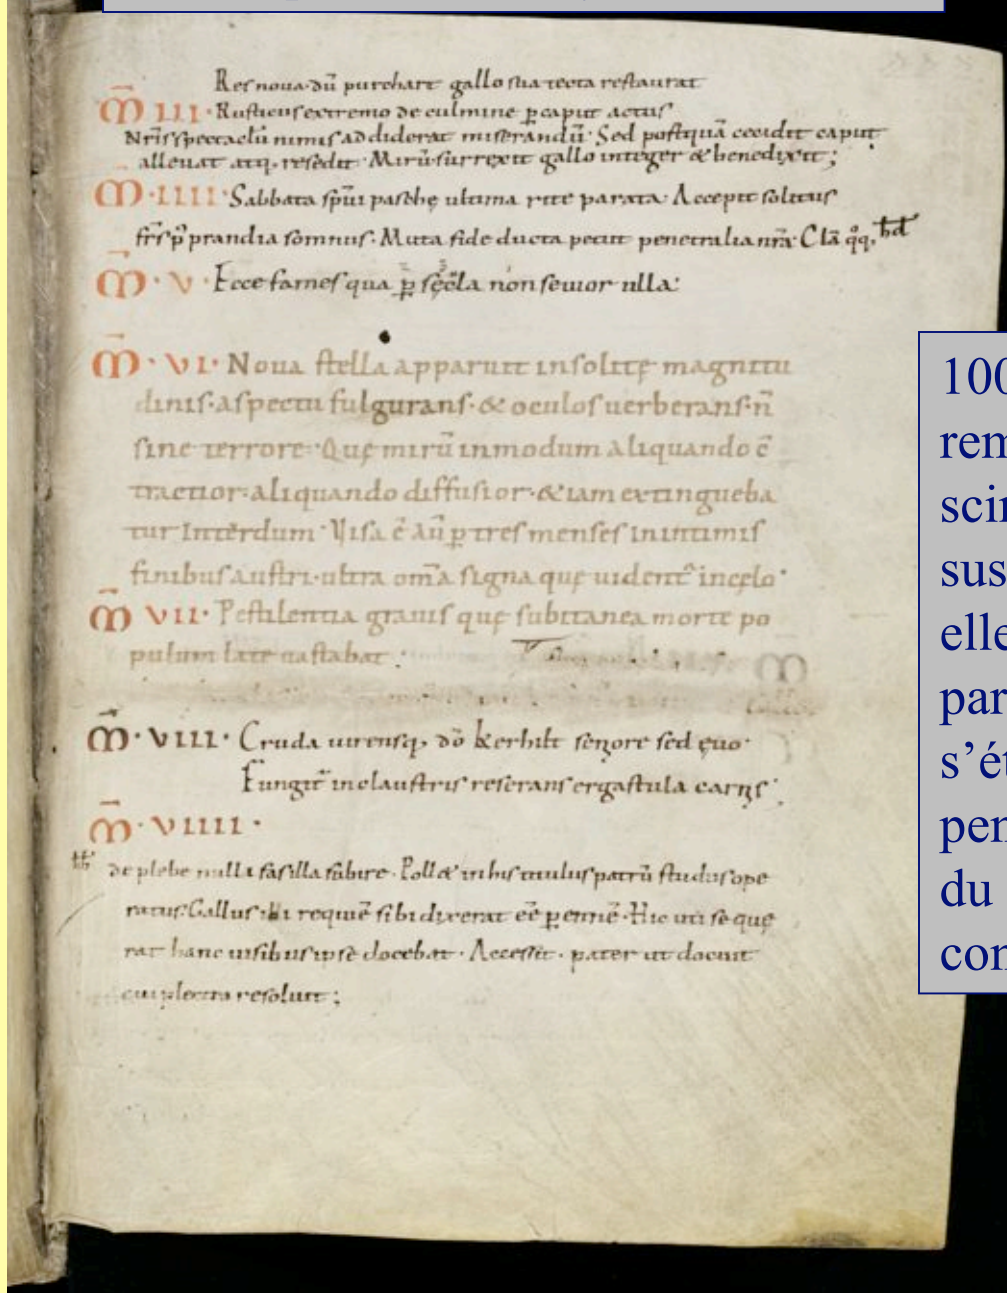 Res noua. dū purchart gallo sua tecta restaurat
M̄ III · Rusticus extremo de culmine ꝑ caput actus
Nr̄is spectaclū nimis addiderat miserandū · Sed postquā cecidit caput
alleuat atq, resedit · Mirū surrexit gallo integer & benedixit ;
M̄ · IIII · Sabbata sp̄ui paschę ultima rite parata · Accepit solitus
fr̄s p̄ prandia somnus · Muta fide ducta petit penetralia nr̄a · Clā q̊q,
M̄ · V · Ecce fames qua ꝑ sęcl̄a non seuior ulla ·
M̄ · VI · Noua stella apparuit insolitę magnitu
dinis · aspectu fulgurans · & oculos uerberans · n̄
sine terrore · Quę mirū inmodum aliquando ē
tractior · aliquando diffusior · & iam extingueba
tur Interdum · Visa ē aū ꝑ tres menses inintimis
finibus austri · ultra om̄a signa quę uident᷑ incęlo ·
M̄ VII · Pestilentia grauis quę subitanea morte po
pulum late uastabat :
M̄ · VIII · Cruda uirensq, dō Kerhilt sęniore sed ęuo ·
Fungit᷑ inclaustris reserans ergastula carnis ·
M̄ · VIIII ·
de plebe nulli fas illa subire · Poll& in his titulus patrū studiis ope
ratus · Gallus · Vi requiē sibi dixerat eē ꝑennē · Hic uti se quę
rat hanc uisibus ipse docebat · Accessit · pater ut docuit
cui plectra resoluit ;
100
rem
scin
sus
elle
par
s'ét
pen
du
con